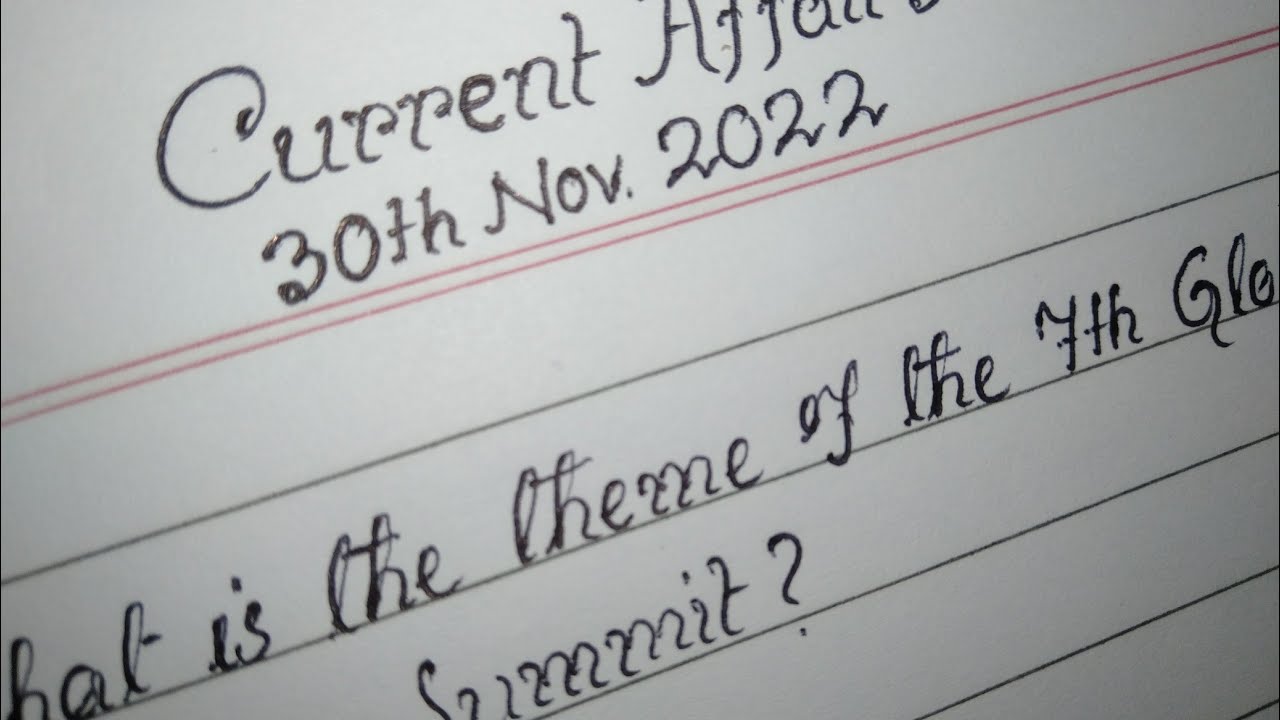 Current Affairs
30th Nov. 2022
hat is the theme of the 7th Glo
Summit?